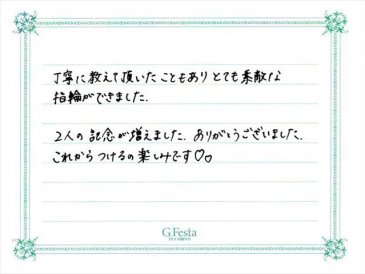 丁寧に教えて頂いたこともありとても素敵な
指輪ができました.
2人の記念が増えました. ありがとうございました.
これからつけるの楽しみです♡。
G.Festa
DIAMOND